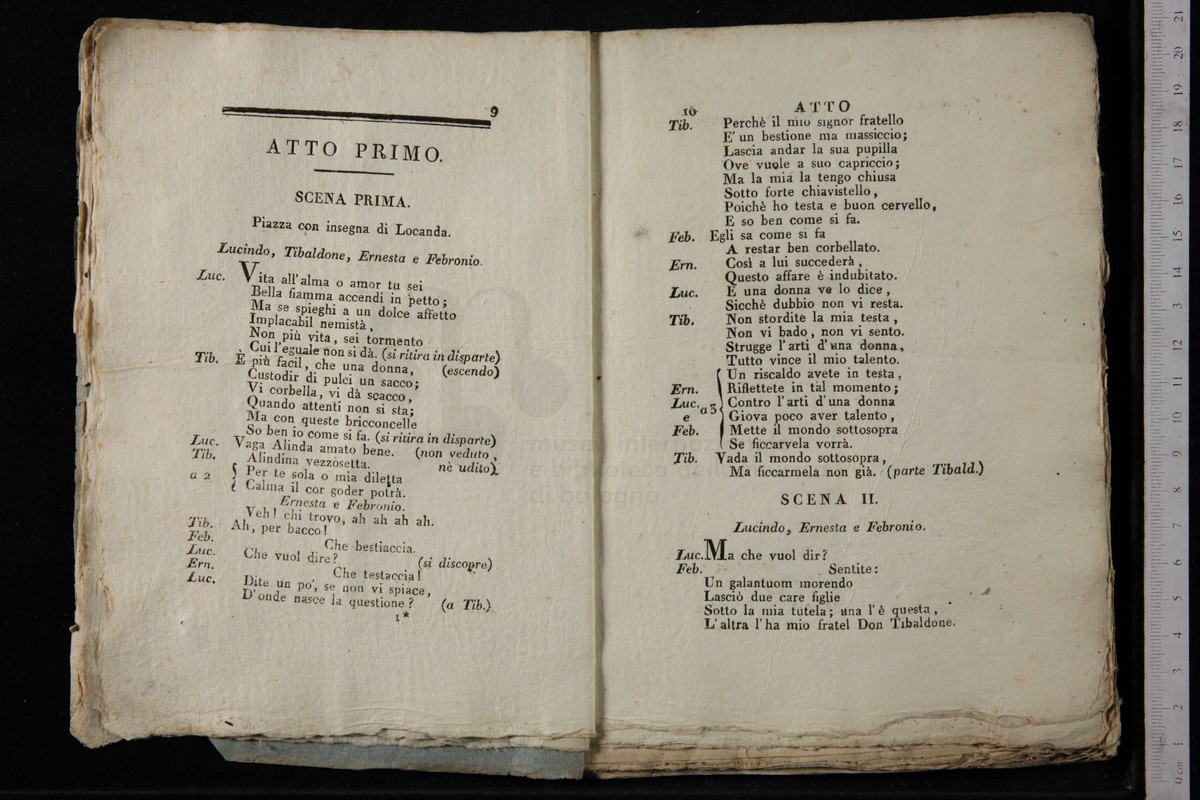 9
ATTO PRIMO.
SCENA PRIMA.
Piazza con insegna di Locanda.
Lucindo, Tibaldone, Ernesta e Febronio.
Luc. Vita all'alma o amor tu sei
Bella fiamma accendi in petto;
Ma se spieghi a un dolce affetto
Implacabil nemistà,
Non più vita, sei tormento
Cui l'eguale non si dà. (si ritira in disparte)
Tib. È più facil, che una donna, (escendo)
Custodir di pulci un sacco;
Vi corbella, vi dà scacco,
Quando attenti non si sta;
Ma con queste bricconcelle
So ben io come si fa. (si ritira in disparte)
Luc. Vaga Alinda amato bene. (non veduto,
Tib. Alindina vezzosetta. nè udito)
a 2 { Per te sola o mia diletta
Calma il cor goder potrà.
Ernesta e Febronio.
Veh! chi trovo, ah ah ah ah.
Tib. Ah, per bacco!
Feb. Che bestiaccia.
Luc. Che vuol dire? (si discopre)
Ern. Che testaccia!
Luc. Dite un po', se non vi spiace,
D'onde nasce la questione? (a Tib.)
1*
10 ATTO
Tib. Perchè il mio signor fratello
E' un bestione ma massiccio;
Lascia andar la sua pupilla
Ove vuole a suo capriccio;
Ma la mia la tengo chiusa
Sotto forte chiavistello,
Poichè ho testa e buon cervello,
E so ben come si fa.
Feb. Egli sa come si fa
A restar ben corbellato.
Ern. Così a lui succederà,
Questo affare è indubitato.
Luc. E una donna ve lo dice,
Sicchè dubbio non vi resta.
Tib. Non stordite la mia testa,
Non vi bado, non vi sento.
Strugge l'arti d'una donna,
Tutto vince il mio talento.
{ Un riscaldo avete in testa,
Ern. Riflettete in tal momento;
Luc. a 3 Contro l'arti d'una donna
e Giova poco aver talento,
Feb. Mette il mondo sottosopra
Se ficcarvela vorrà.
Tib. Vada il mondo sottosopra,
Ma ficcarmela non già. (parte Tibald.)
SCENA II.
Lucindo, Ernesta e Febronio.
Luc. Ma che vuol dir?
Feb. Sentite:
Un galantuom morendo
Lasciò due care figlie
Sotto la mia tutela; una l'è questa,
L'altra l'ha mio fratel Don Tibaldone.
museo internaz
e biblioteca dell
di bologna
0 cm 1 2 3 4 5 6 7 8 9 10 11 12 13 14 15 16 17 18 19 20 21